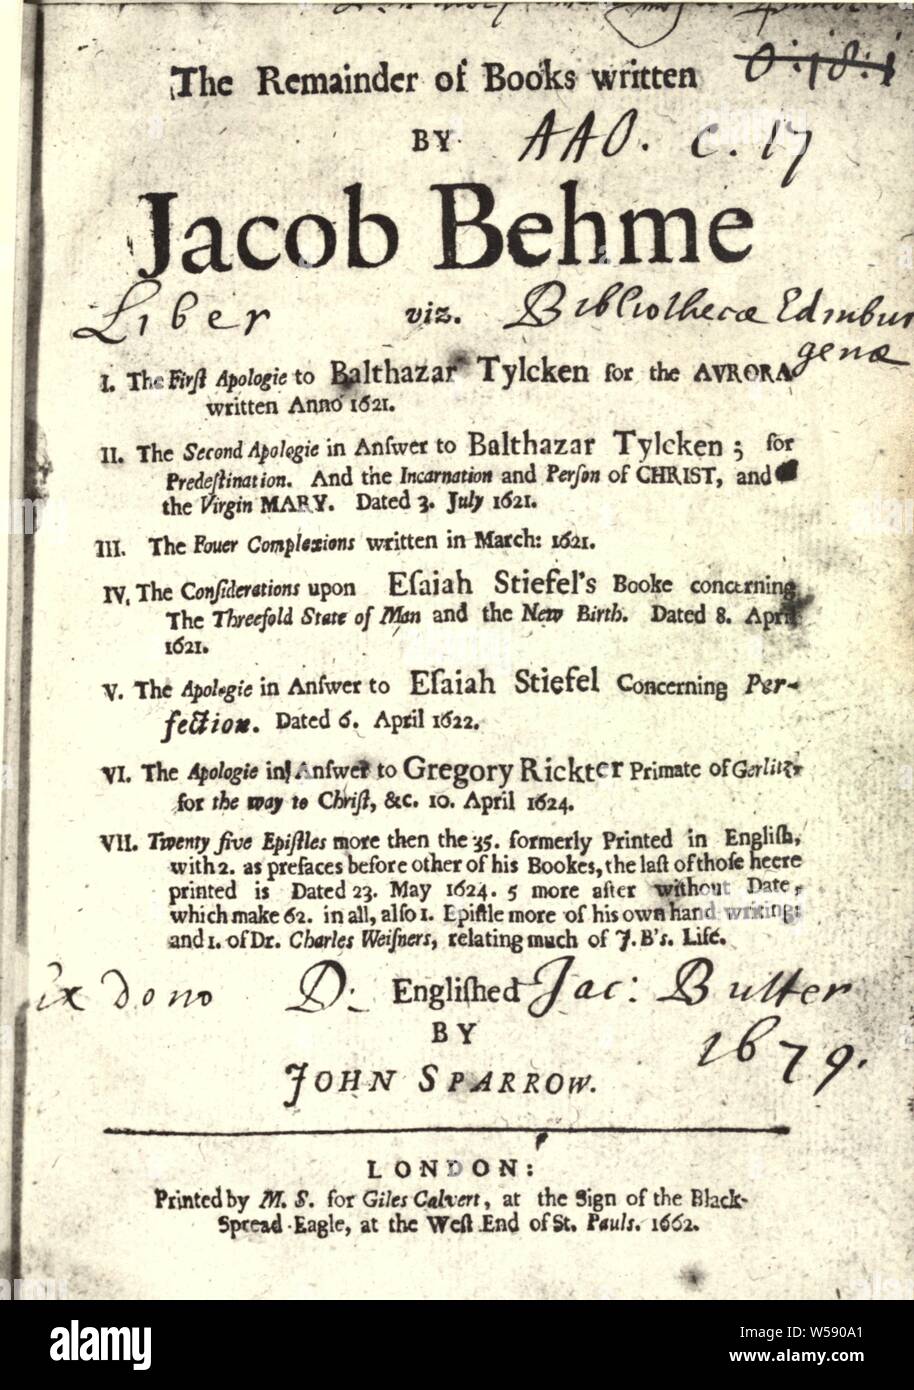 The Remainder of Books written
0:18:1
BY
AAO. C. 17
Jacob Behme
Liber viz. Bibliothecæ Edinbur
genæ
I. The Firſt Apologie to Balthazar Tylcken for the AVRORA
written Anno 1621.
II. The Second Apologie in Anſwer to Balthazar Tylcken ; for
Predeſtination. And the Incarnation and Perſon of CHRIST, and
the Virgin MARY. Dated 3. July 1621.
III. The Fouer Complexions written in March: 1621.
IV. The Conſiderations upon Eſaiah Stiefel's Booke concerning
The Threefold State of Man and the New Birth. Dated 8. April
1621.
V. The Apologie in Anſwer to Eſaiah Stiefel Concerning Per-
fection. Dated 6. April 1622.
VI. The Apologie in Anſwer to Gregory Rickter Primate of Gerlitz,
for the way to Chriſt, &c. 10. April 1624.
VII. Twenty five Epiſtles more then the 35. formerly Printed in Engliſh,
with 2. as prefaces before other of his Bookes, the laſt of thoſe heere
printed is Dated 23. May 1624. 5 more after without Date,
which make 62. in all, alſo 1. Epiſtle more of his own hand writing:
and 1. of Dr. Charles Weiſners, relating much of J. B's. Life.
Ex dono D: Engliſhed Jac: Butter
BY
1679.
JOHN SPARROW.
LONDON:
Printed by M. S. for Giles Calvert, at the Sign of the Black-
Spread-Eagle, at the Weſt End of St. Pauls. 1662.
alamy
Image ID: W590A1
www.alamy.com